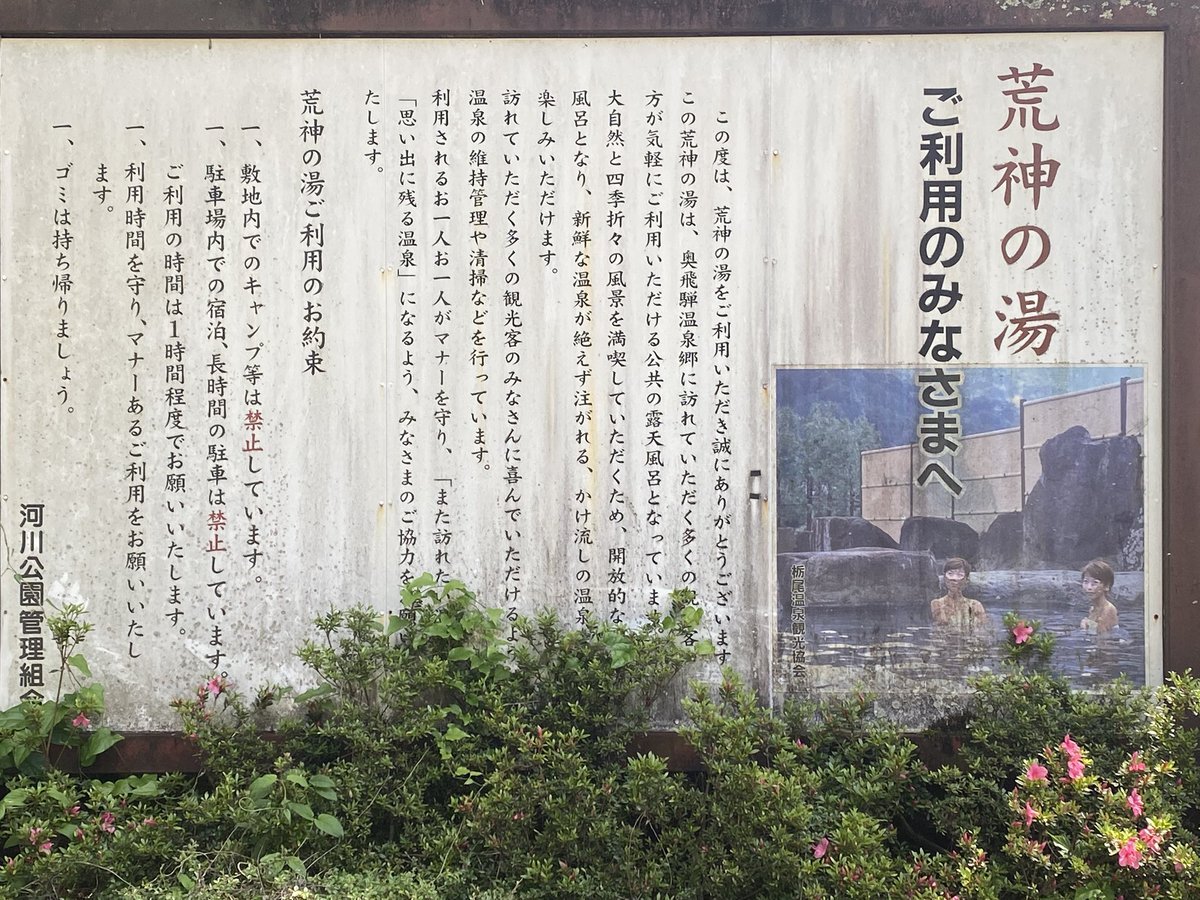 荒神の湯
ご利用のみなさまへ
この度は、荒神の湯をご利用いただき誠にありがとうございます
この荒神の湯は、奥飛騨温泉郷に訪れていただく多くの観光客
方が気軽にご利用いただける公共の露天風呂となっていま
大自然と四季折々の風景を満喫していただくため、開放的な
風呂となり、新鮮な温泉が絶えず注がれる、かけ流しの温泉
楽しみいただけます。
訪れていただく多くの観光客のみなさんに喜んでいただけるよう
温泉の維持管理や清掃などを行っています。
利用されるお一人お一人がマナーを守り、「また訪れた
「思い出に残る温泉」になるよう、みなさまのご協力をお願い
たします。
荒神の湯ご利用のお約束
一、敷地内でのキャンプ等は禁止しています。
一、駐車場内での宿泊、長時間の駐車は禁止しています。
ご利用の時間は1時間程度でお願いいたします。
一、利用時間を守り、マナーあるご利用をお願いいたし
ます。
一、ゴミは持ち帰りましょう。
河川公園管理組合
栃尾温泉観光協会